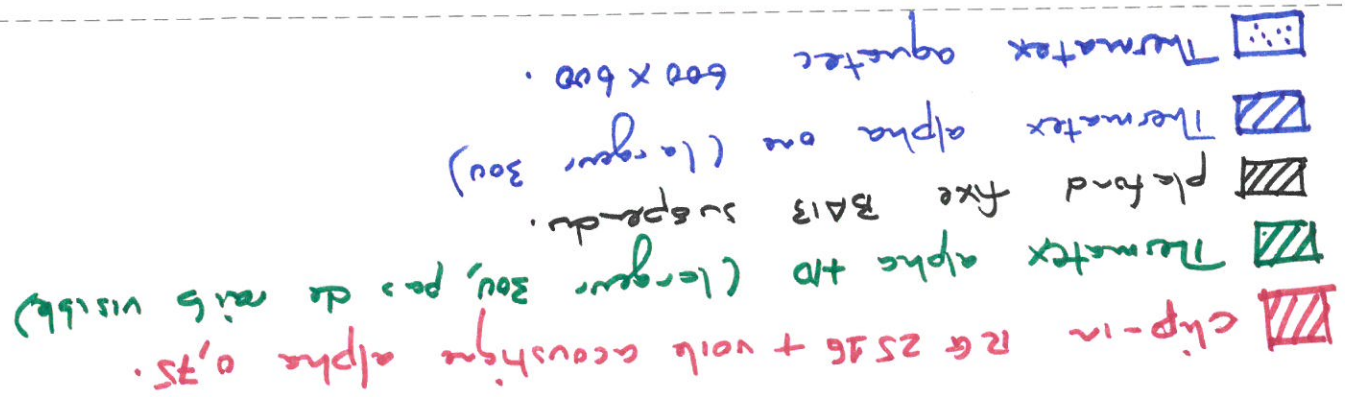 clip-in RG 2516 + voile acoustique alpha 0,75.
Thermatex alpha HD (largeur 300, pas de rails visible)
plafond fixe BA13 suspendu.
Thermatex alpha one (largeur 300)
Thermatex aquatec 600 x 600.